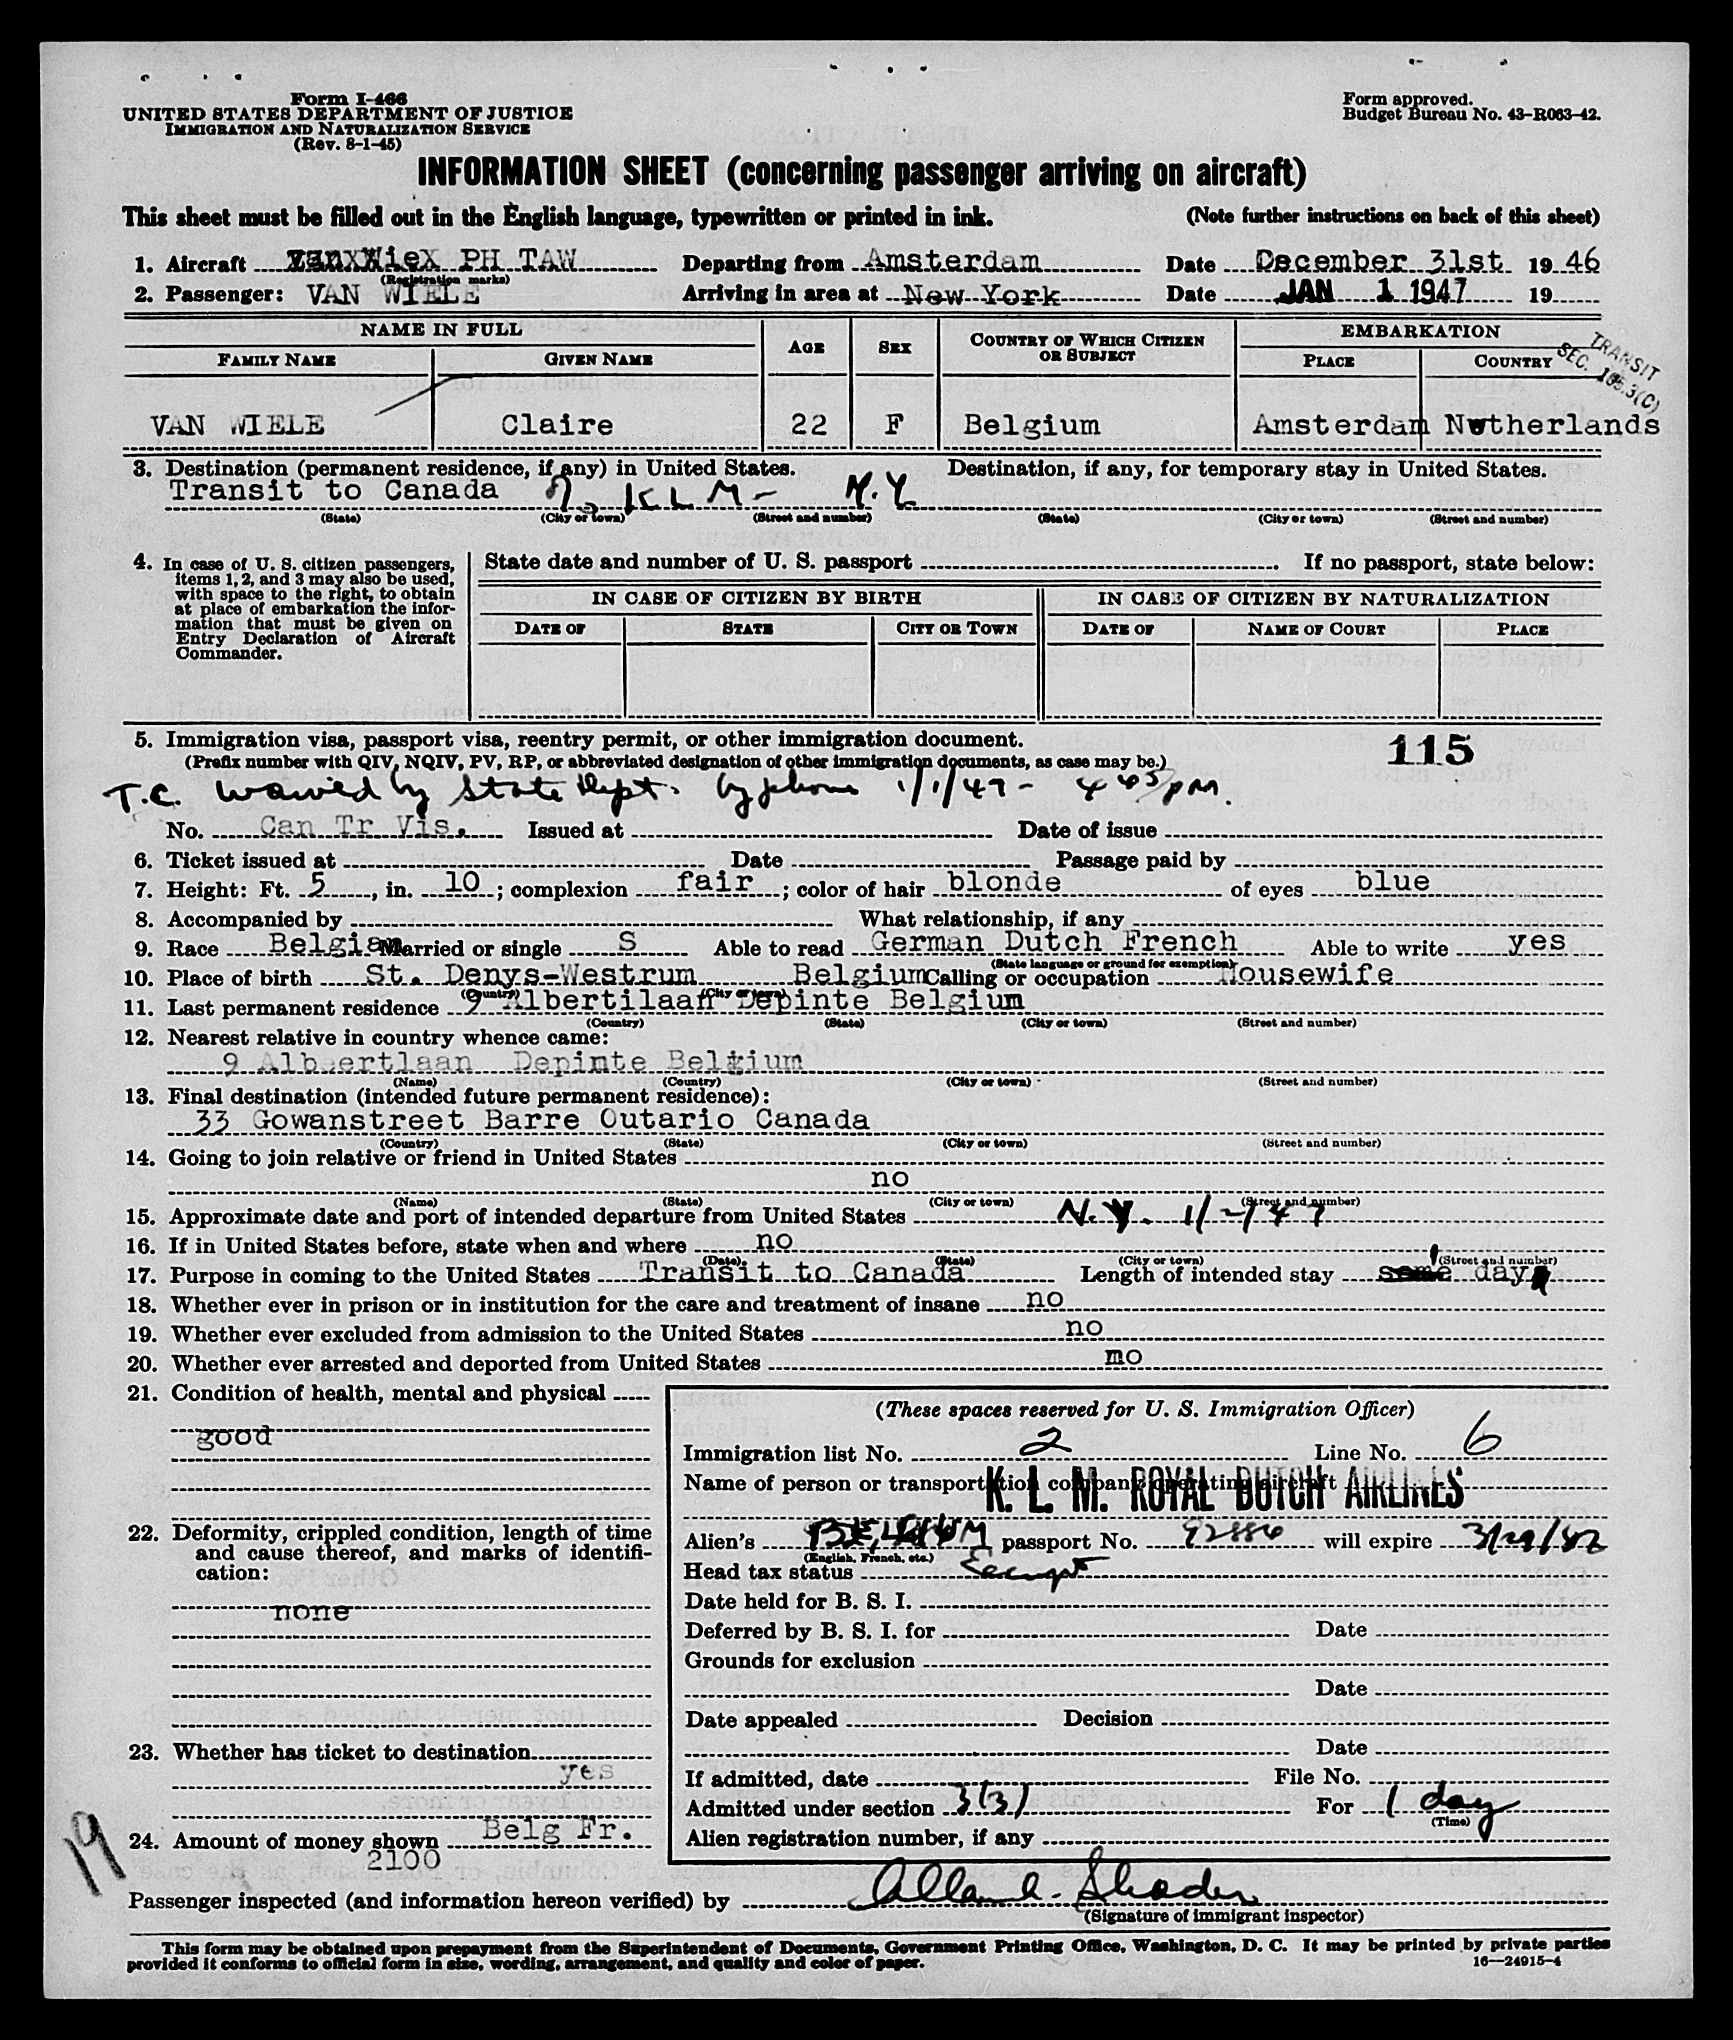 Form I-466
UNITED STATES DEPARTMENT OF JUSTICE
IMMIGRATION AND NATURALIZATION SERVICE
(Rev. 8-1-45)
Form approved.
Budget Bureau No. 43-R063-42.
INFORMATION SHEET (concerning passenger arriving on aircraft)
This sheet must be filled out in the English language, typewritten or printed in ink. (Note further instructions on back of this sheet)
1. Aircraft PH TAW Departing from Amsterdam Date December 31st 19 46
(Registration marks)
2. Passenger: VAN WIELE Arriving in area at New York Date JAN 1 1947 19
NAME IN FULL AGE SEX COUNTRY OF WHICH CITIZEN OR SUBJECT EMBARKATION
FAMILY NAME GIVEN NAME PLACE COUNTRY
TRANSIT
SEC. 165.3(C)
VAN WIELE Claire 22 F Belgium Amsterdam Netherlands
3. Destination (permanent residence, if any) in United States. Destination, if any, for temporary stay in United States.
Transit to Canada KLM - N.Y.
(State) (City or town) (Street and number) (State) (City or town) (Street and number)
4. In case of U. S. citizen passengers, items 1, 2, and 3 may also be used, with space to the right, to obtain at place of embarkation the information that must be given on Entry Declaration of Aircraft Commander.
State date and number of U. S. passport . If no passport, state below:
IN CASE OF CITIZEN BY BIRTH IN CASE OF CITIZEN BY NATURALIZATION
DATE OF STATE CITY OR TOWN DATE OF NAME OF COURT PLACE
5. Immigration visa, passport visa, reentry permit, or other immigration document. 115
(Prefix number with QIV, NQIV, PV, RP, or abbreviated designation of other immigration documents, as case may be.)
T.C. waived by State Dept. by phone 1/1/47 - 4 45 pm.
No. Can Tr Vis. Issued at Date of issue
6. Ticket issued at Date Passage paid by
7. Height: Ft. 5, in. 10; complexion fair; color of hair blonde of eyes blue
8. Accompanied by What relationship, if any
9. Race Belgian Married or single S Able to read German Dutch French Able to write yes
(State language or ground for exemption)
10. Place of birth St. Denys-Westrum Belgium Calling or occupation Housewife
(Country) (City or town)
11. Last permanent residence 9 Albertilaan Depinte Belgium
(Country) (State) (City or town) (Street and number)
12. Nearest relative in country whence came:
9 Albeertlaan Depinte Belgium
(Name) (Country) (City or town) (Street and number)
13. Final destination (intended future permanent residence):
33 Gowanstreet Barre Outario Canada
(Country) (State) (City or town) (Street and number)
14. Going to join relative or friend in United States
no
(Name) (State) (City or town) (Street and number)
15. Approximate date and port of intended departure from United States N.Y. 1/-/47
16. If in United States before, state when and where no
(Date) (State) (City or town) (Street and number)
17. Purpose in coming to the United States Transit to Canada Length of intended stay day
18. Whether ever in prison or in institution for the care and treatment of insane no
19. Whether ever excluded from admission to the United States no
20. Whether ever arrested and deported from United States mo
21. Condition of health, mental and physical
good
22. Deformity, crippled condition, length of time and cause thereof, and marks of identification:
none
23. Whether has ticket to destination
yes
24. Amount of money shown Belg Fr.
2100
19
(These spaces reserved for U. S. Immigration Officer)
Immigration list No. 2 Line No. 6
Name of person or transportation company operating aircraft
K. L. M. ROYAL DUTCH AIRLINES
Alien's BELGIUM passport No. 92886 will expire
(English, French, etc.)
Head tax status Exempt
Date held for B. S. I.
Deferred by B. S. I. for Date
Grounds for exclusion
Date
Date appealed Decision
Date
If admitted, date File No.
Admitted under section 3(3) For 1 day
(Time)
Alien registration number, if any
Passenger inspected (and information hereon verified) by
(Signature of immigrant inspector)
This form may be obtained upon prepayment from the Superintendent of Documents, Government Printing Office, Washington, D. C. It may be printed by private parties
provided it conforms to official form in size, wording, arrangement, and quality and color of paper.
16—24915-4